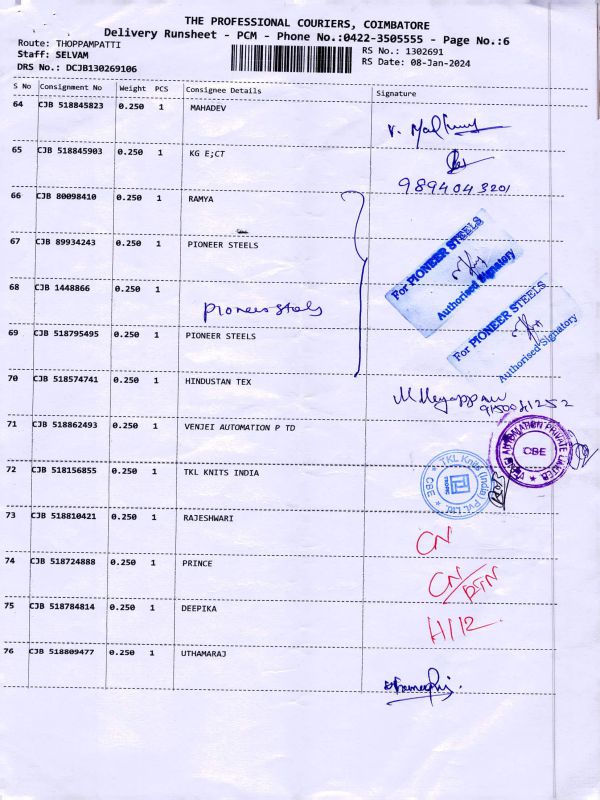 THE PROFESSIONAL COURIERS, COIMBATORE
Delivery Runsheet - PCM - Phone No.:0422-3505555 - Page No.:6
Route: THOPPAMPATTI
Staff: SELVAM
DRS No.: DCJB130269106
RS No.: 1302691
RS Date: 08-Jan-2024
S No Consignment No Weight PCS Consignee Details Signature
64 CJB 518845823 0.250 1 MAHADEV
65 CJB 518845903 0.250 1 KG E;CT
9894043201
66 CJB 80098410 0.250 1 RAMYA
67 CJB 89934243 0.250 1 PIONEER STEELS
For PIONEER STEELS
Authorised Signatory
68 CJB 1448866 0.250 1 Pioneer Steels
For PIONEER STEELS
Authorised Signatory
69 CJB 518795495 0.250 1 PIONEER STEELS
70 CJB 518574741 0.250 1 HINDUSTAN TEX
71 CJB 518862493 0.250 1 VENJEI AUTOMATION P TD
AUTOMATION PRIVATE LIMITED
CBE
72 CJB 518156855 0.250 1 TKL KNITS INDIA
TKL Knits (India) Pvt. Ltd.
CBE
73 CJB 518810421 0.250 1 RAJESHWARI CN
74 CJB 518724888 0.250 1 PRINCE CN/RTN
75 CJB 518784814 0.250 1 DEEPIKA H/12
76 CJB 518809477 0.250 1 UTHAMARAJ